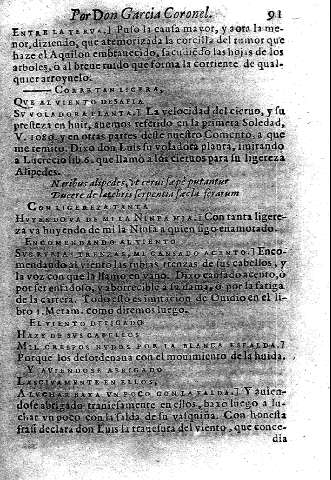 Por Don Garcia Coronel. 91
ENTRE LA YERVA.] Puso la causa mayor, y aora la me-
nor, diziendo, que atemorizada la corcilla del rumor que
haze el Aquilon embrauecido, sacudiẽdo las hojas de los
arboles, ò al breue ruido que forma la corriente de qual-
quier arroyuelo.
CORRE TAN LIGERA,
QVE AL VIENTO DESAFIA
SV VOLADORA PLANTA.] La velocidad del cieruo, y su
presteza en huir, auemos referido en la primera Soledad,
V. 1089. y en otras partes deste nuestro Comento, a que
me remito. Dixo don Luis su voladora planta, imitando
a Lucrecio lib. 6. que llamò a los cieruos para su ligereza
Alipedes.
Naribus alipedes, vt cerui sæpè putantur
Ducere de latebris serpentia sæcla ferarum
CON LIGEREZA TANTA
HVYENDO VA DE MI LA NINFA MIA.] Con tanta ligere-
za va huyendo de mi la Ninfa a quien sigo enamorado.
ENCOMENDANDO AL VIENTO
SVS RVBIAS TRENZAS, MI CANSADO ACENTO.] Enco-
mendando al viento las rubias trenzas de sus cabellos, y
la voz con que la llamo en vano. Dixo cansado acento, ò
por ser enfadoso, y aborrecible a su dama, ò por la fatiga
de la carrera. Todo esto es imitacion de Ouidio en el li-
bro 1. Metam. como diremos luego.
EL VIENTO DELICADO
HAZE DE SVS CABELLOS
MIL CRESPOS NVDOS POR LA BLANCA ESPALDA.]
Porque los desordenaua con el mouimiento de la huida.
Y AVIENDOSE ABRIGADO
LASCIVAMENTE EN ELLOS,
A LVCHAR BAXA VN POCO CON LA FALDA.] Y auien-
dose abrigado trauiesamente en ellos, baxo luego a lu-
char vn poco con la falda de su vasquiña. Con honesta
frasi declara don Luis la trauesura del viento, que conce-
dia